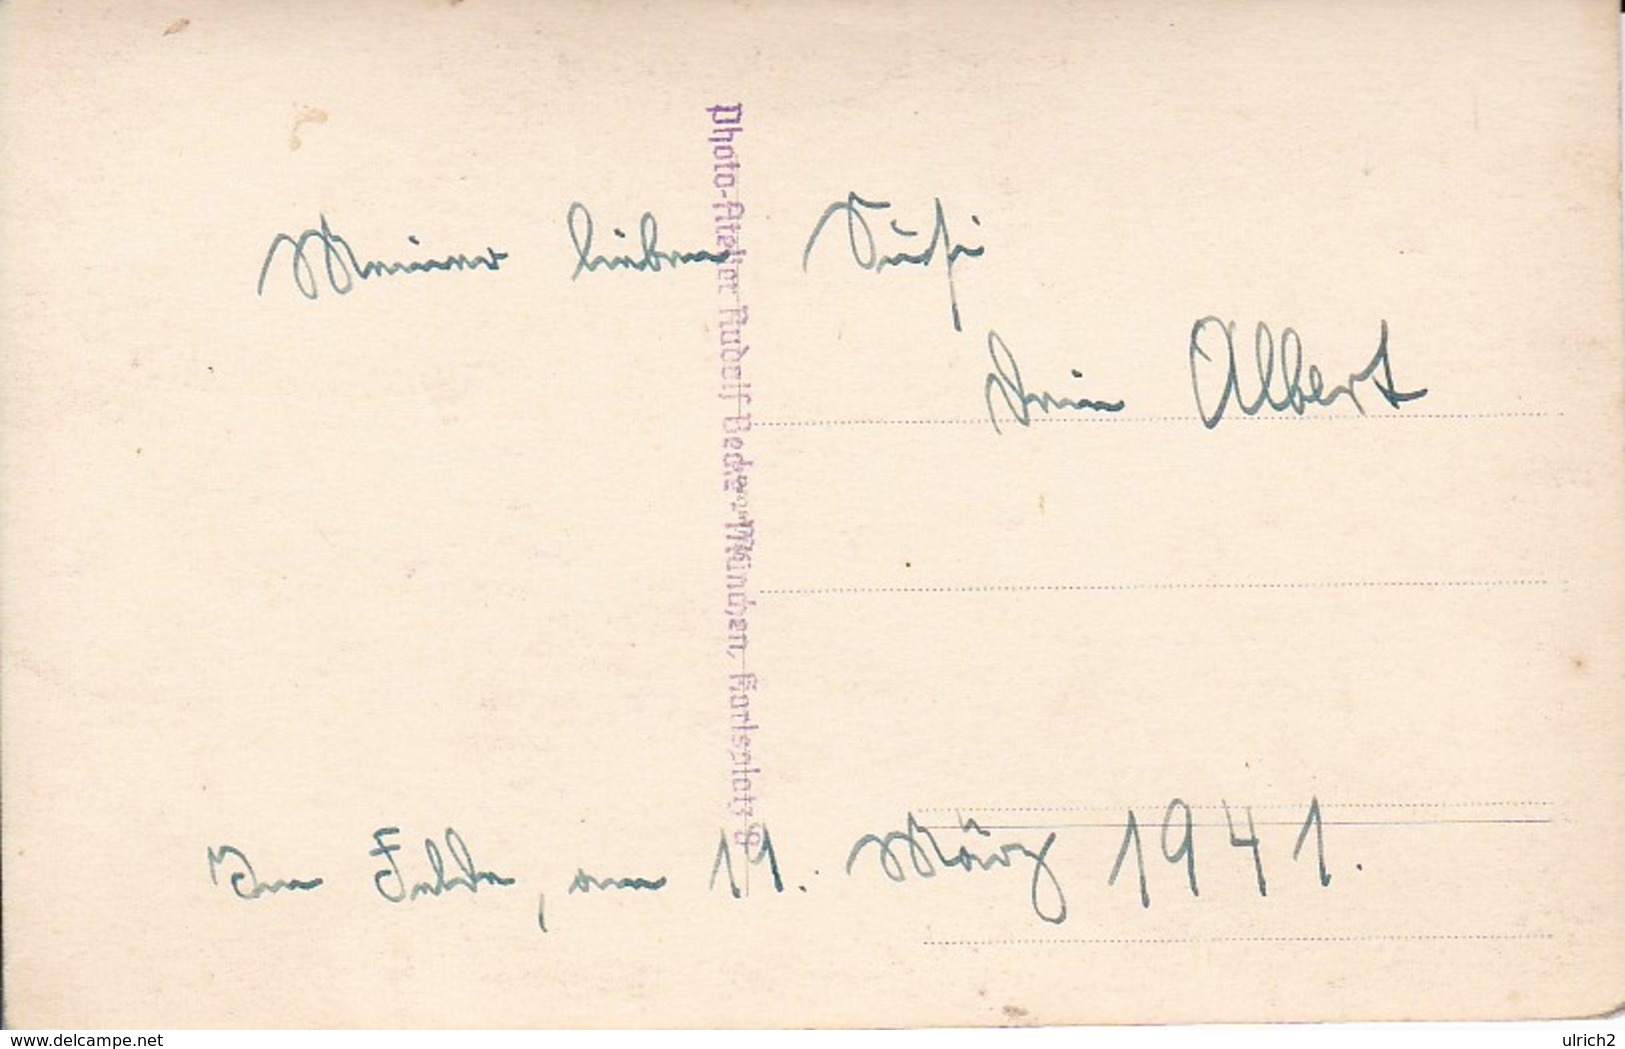 Meiner lieben Susi
Dein Albert
Photo-Atelier Rudolf Becke - München, Karlsplatz 8
Im Felde, am 19. März 1941.
delcampe.net
ulrich2